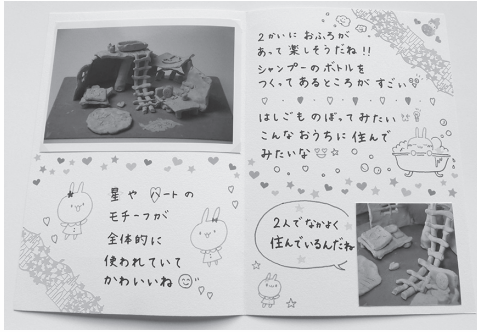 星や ハートの
モチーフが
全体的に
使われていて
かわいいね
2かいに おふろが
あって 楽しそうだね!!
シャンプーのボトルを
つくってあるところが すごい
はしごも のぼってみたい
こんな おうちに 住んで
みたいな
2人で なかよく
住んでいるんだね